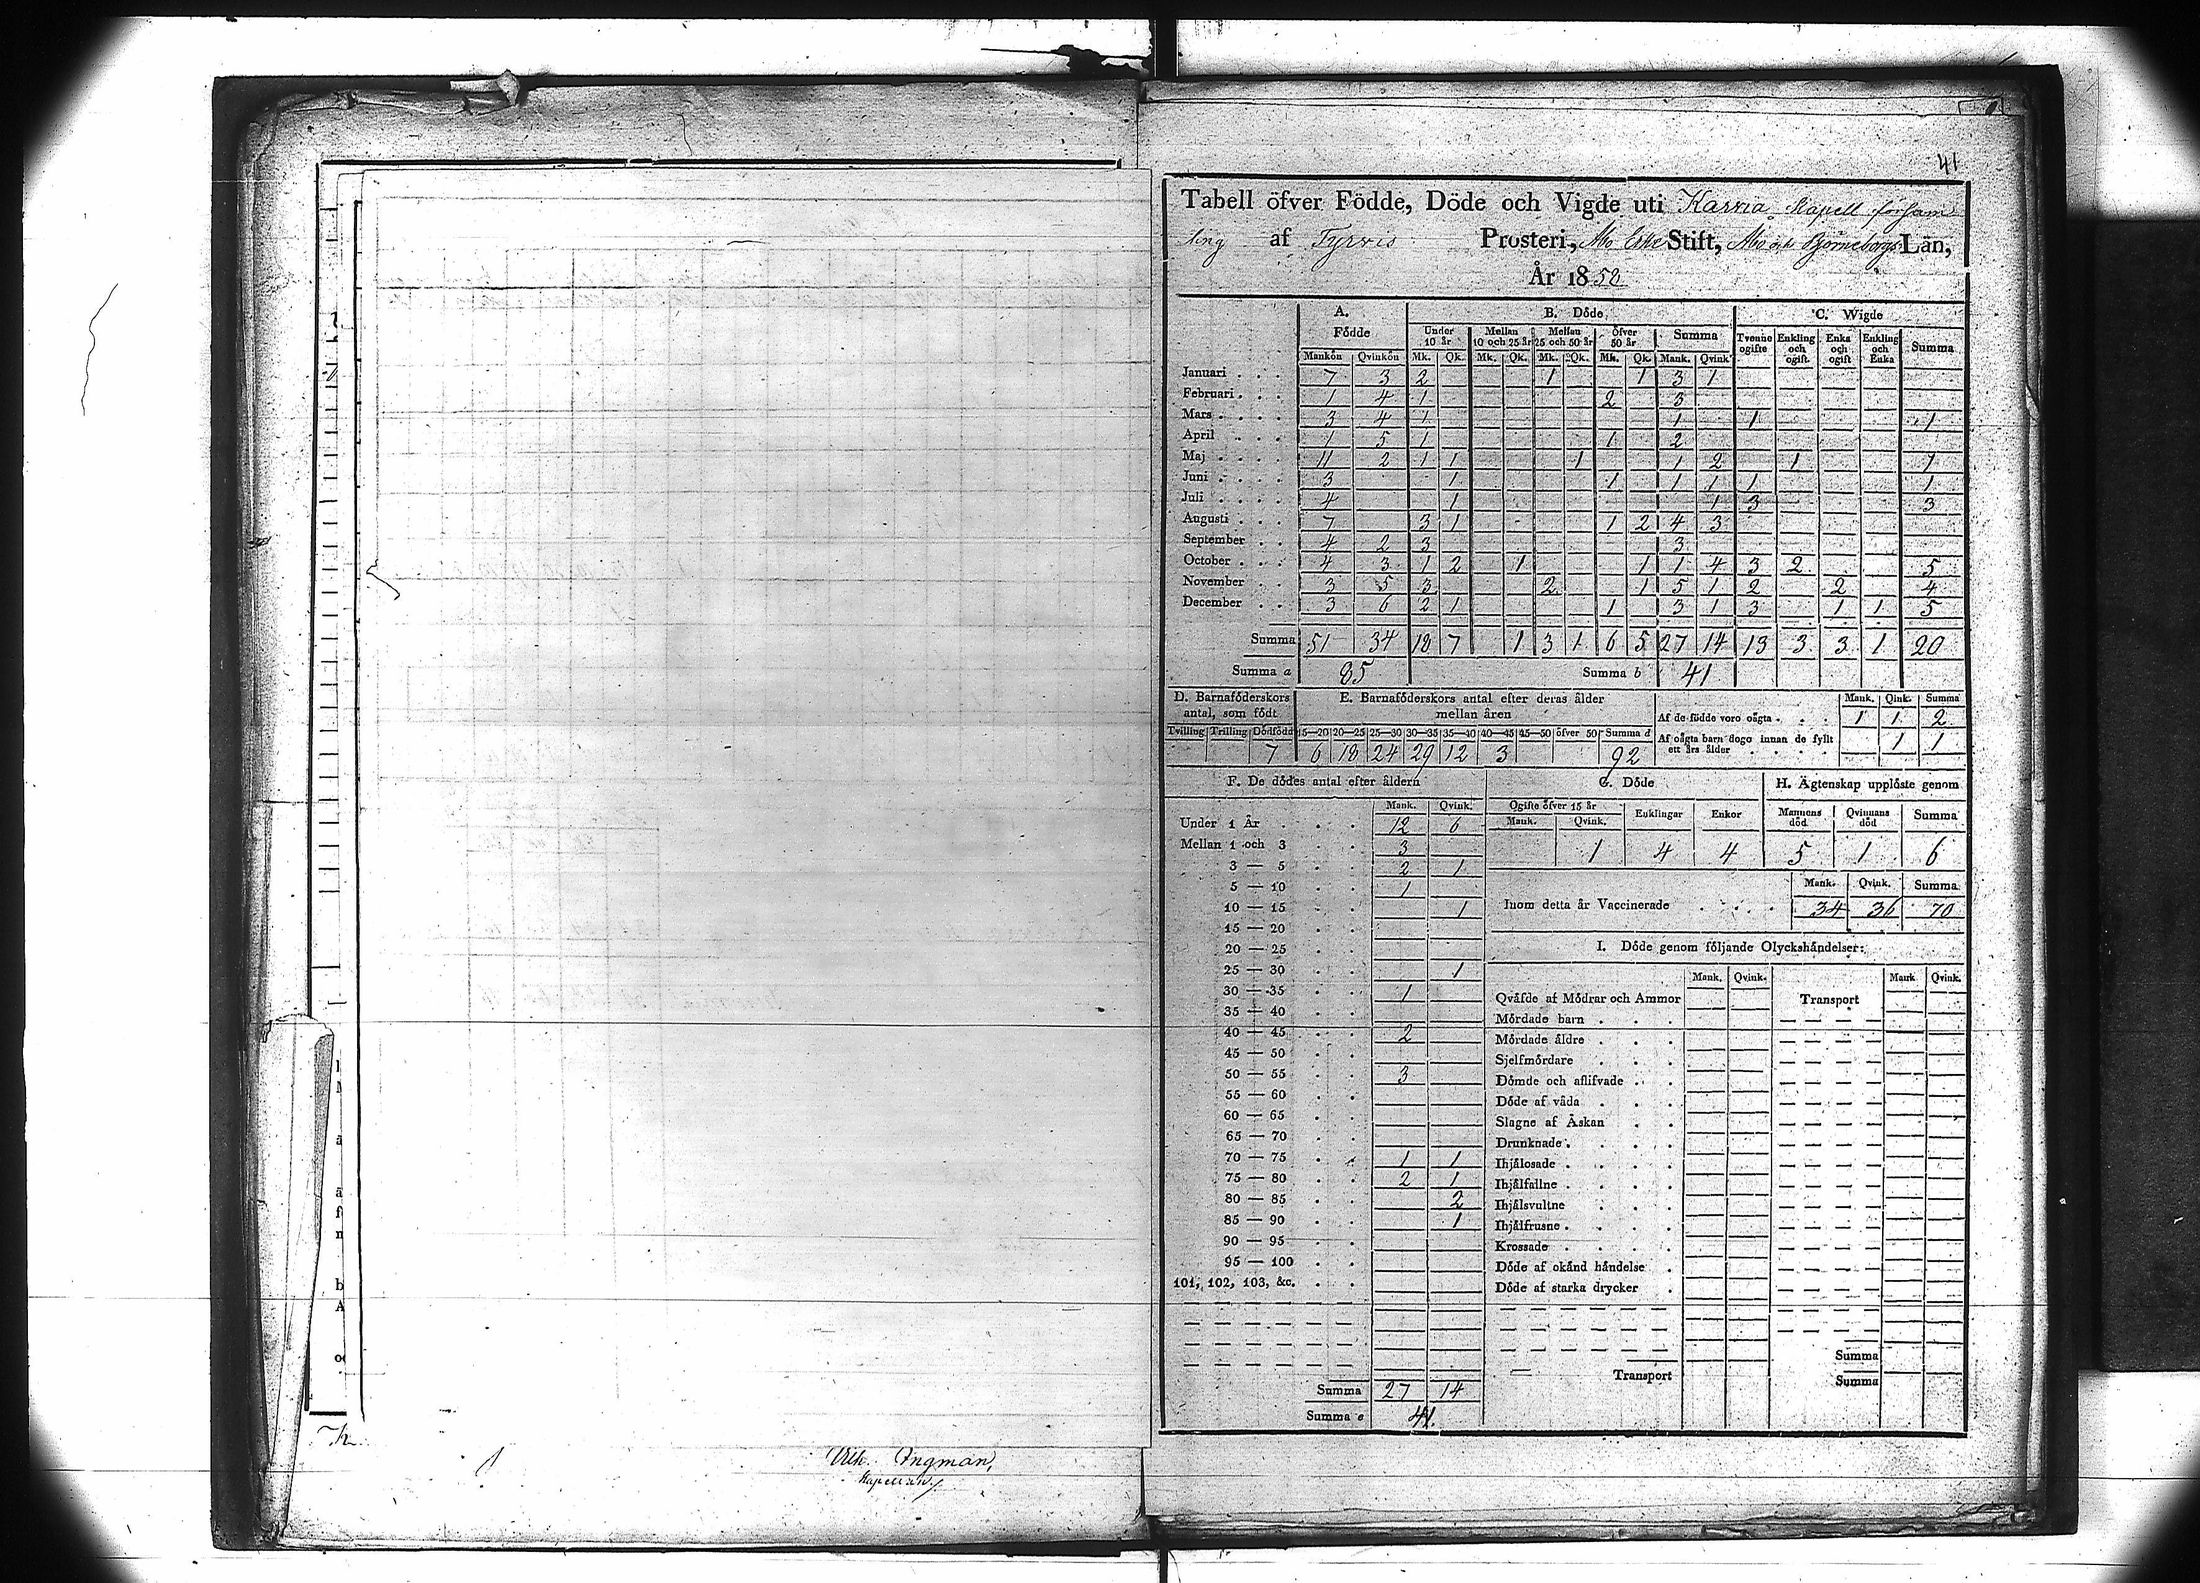 41
Tabell öfver Födde, Döde och Vigde uti Karvia Kapell försam
ling af Tyrvis Prosteri, Åbo Erke Stift, Åbo och Björneborgs Län,
År 1850
A. B. Döde C. Wigde
Födde Under 10 år Mellan 10 och 25 år Mellan 25 och 50 år Öfver 50 år Summa Tvenne ogifte Enkling och ogift Enka och ogift Enkling och Enka Summa
Mankön Qvinkön Mk. Qk. Mk. Qk. Mk. Qk. Mk. Qk. Mank. Qvink.
Januari 7 3 2 1 1 3 1
Februari 1 4 1 2 3
Mars 3 4 1 1 1 1
April 1 5 1 1 2
Maj 11 2 1 1 1 1 2 1 1
Juni 3 1 1 1 1 1 1
Juli 4 1 1 3 3
Augusti 7 3 1 1 2 4 3
September 4 2 3 3
October 4 3 1 2 1 1 1 4 3 2 5
November 3 5 3 2 1 5 1 2 2 4
December 3 6 2 1 1 3 1 3 1 1 5
Summa 51 34 18 7 1 3 1 6 5 27 14 13 3 3 1 20
Summa a 85 Summa b 41
D. Barnaföderskors antal, som födt
Tvilling Trilling Dödfödd
7
E. Barnaföderskors antal efter deras ålder
mellan åren
15—20 20—25 25—30 30—35 35—40 40—45 45—50 öfver 50 Summa d
6 18 24 29 12 3 92
Mank. Qink. Summa
Af de födde voro oägta 1 1 2
Af oägta barn dogo innan de fyllt
ett års ålder 1 1
F. De dödes antal efter åldern
Mank. Qvink.
Under 1 År 12 6
Mellan 1 och 3 3
3 — 5 2 1
5 — 10 1
10 — 15 1
15 — 20
20 — 25
25 — 30 1
30 — 35 1
35 — 40
40 — 45 2
45 — 50
50 — 55 3
55 — 60
60 — 65
65 — 70
70 — 75 1 1
75 — 80 2 1
80 — 85 2
85 — 90 1
90 — 95
95 — 100
101, 102, 103, &c.
Summa 27 14
Summa e 41.
G. Döde
Ogifte öfver 15 år Enklingar Enkor
Mank. Qvink.
1 4 4
H. Ägtenskap upplöste genom
Mannens död Qvinnans död Summa
5 1 6
Mank. Qvink. Summa
Inom detta år Vaccinerade 34 36 70
I. Döde genom följande Olyckshändelser:
Mank. Qvink. Mank. Qvink.
Qväfde af Mödrar och Ammor Transport
Mördade barn
Mördade äldre
Sjelfmördare
Dömde och aflifvade
Döde af våda
Slagne af Åskan
Drunknade
Ihjälosade
Ihjälfallne
Ihjälsvultne
Ihjälfrusne
Krossade
Döde af okänd händelse
Döde af starka drycker
Summa
Transport Summa
Vilh. Ingman,
Kapellan